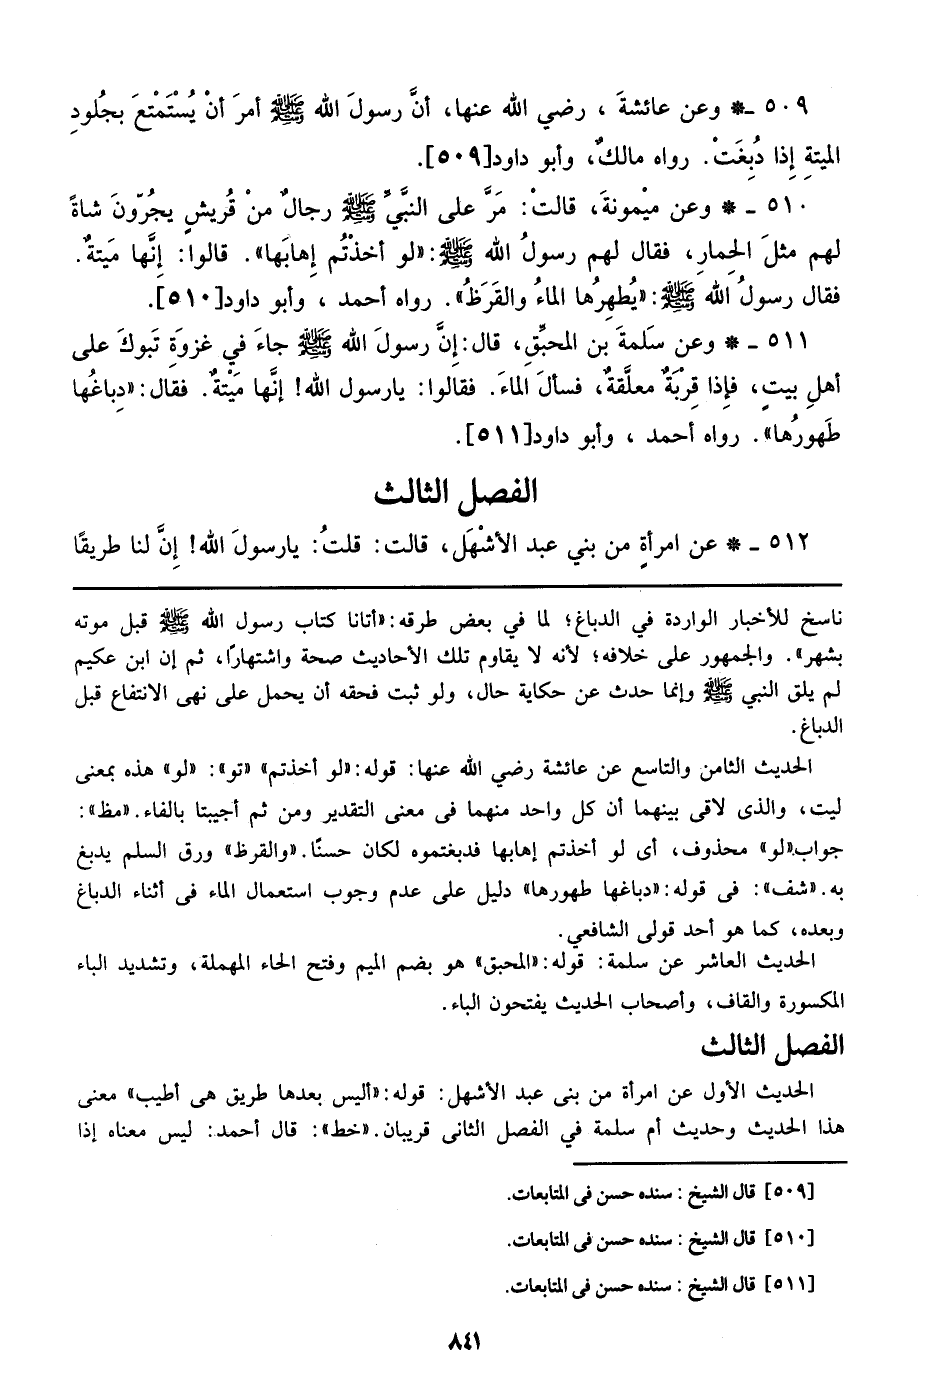 ٥٠٩ ـ* وعن عائشةَ ، رضي الله عنها، أنَّ رسولَ الله ﷺ أمرَ أنْ يُسْتَمْتعَ بجُلودِ
الميتةِ إِذا دُبِغَتْ. رواه مالكٌ، وأبو داود[٥٠٩].
٥١٠ ـ * وعن ميْمونةَ، قالتْ: مَرَّ على النبَّيِّ ﷺ رجالٌ منْ قُريشٍ يجُرّونَ شاةً
لهم مثلَ الحِمارِ، فقال لهم رسولُ الله ﷺ:«لو أخذتُم إِهابَها». قالوا: إِنَّها مَيتةٌ.
فقال رسولُ الله ﷺ:«يُطهِرُها الماءُ والقَرَظُ». رواه أحمد ، وأبو داود[٥١٠].
٥١١ ـ * وعن سَلمةَ بن المحبِّقِ، قال:إِنَّ رسولَ الله ﷺ جاءَ في غزوةِ تَبوكَ على
أهلِ بيتٍ، فإِذا قِرْبَةٌ معلَّقةٌ، فسألَ الماءَ. فقالوا: يارسولَ الله! إِنَّها مَيْتةٌ. فقال:«دِباغُها
طَهورُها». رواه أحمد ، وأبو داود[٥١١].
الفصل الثالث
٥١٢ ـ * عن امرأةٍ من بني عبد الأشْهَل، قالت: قلتُ: يارسولَ الله! إِنَّ لنا طريقًا
ناسخ للأخبار الواردة في الدباغ؛ لما في بعض طرقه:«أتانا كتاب رسول الله ﷺ قبل موته
بشهر». والجمهور على خلافه؛ لأنه لا يقاوم تلك الأحاديث صحة واشتهارًا، ثم إن ابن عكيم
لم يلق النبي ﷺ وإنما حدث عن حكاية حال، ولو ثبت فحقه أن يحمل على نهى الانتفاع قبل
الدباغ.
الحديث الثامن والتاسع عن عائشة رضي الله عنها: قوله:«لو أخذتم» «تو»: «لو» هذه بمعنى
ليت، والذى لاقى بينهما أن كل واحد منهما فى معنى التقدير ومن ثم أجيبتا بالفاء.«مظ»:
جواب«لو» محذوف، أى لو أخذتم إهابها فدبغتموه لكان حسنًا.«والقرظ» ورق السلم يدبغ
به.«شف»: فى قوله:«دباغها طهورها» دليل على عدم وجوب استعمال الماء فى أثناء الدباغ
وبعده، كما هو أحد قولى الشافعي.
الحديث العاشر عن سلمة: قوله:«المحبق» هو بضم الميم وفتح الحاء المهملة، وتشديد الباء
المكسورة والقاف، وأصحاب الحديث يفتحون الباء.
الفصل الثالث
الحديث الأول عن امرأة من بنى عبد الأشهل: قوله:«أليس بعدها طريق هى أطيب» معنى
هذا الحديث وحديث أم سلمة في الفصل الثانى قريبان.«خط»: قال أحمد: ليس معناه إذا
[٥٠٩] قال الشيخ : سنده حسن فى المتابعات.
[٥١٠] قال الشيخ : سنده حسن فى المتابعات.
[٥١١] قال الشيخ : سنده حسن فى المتابعات.
٨٤١